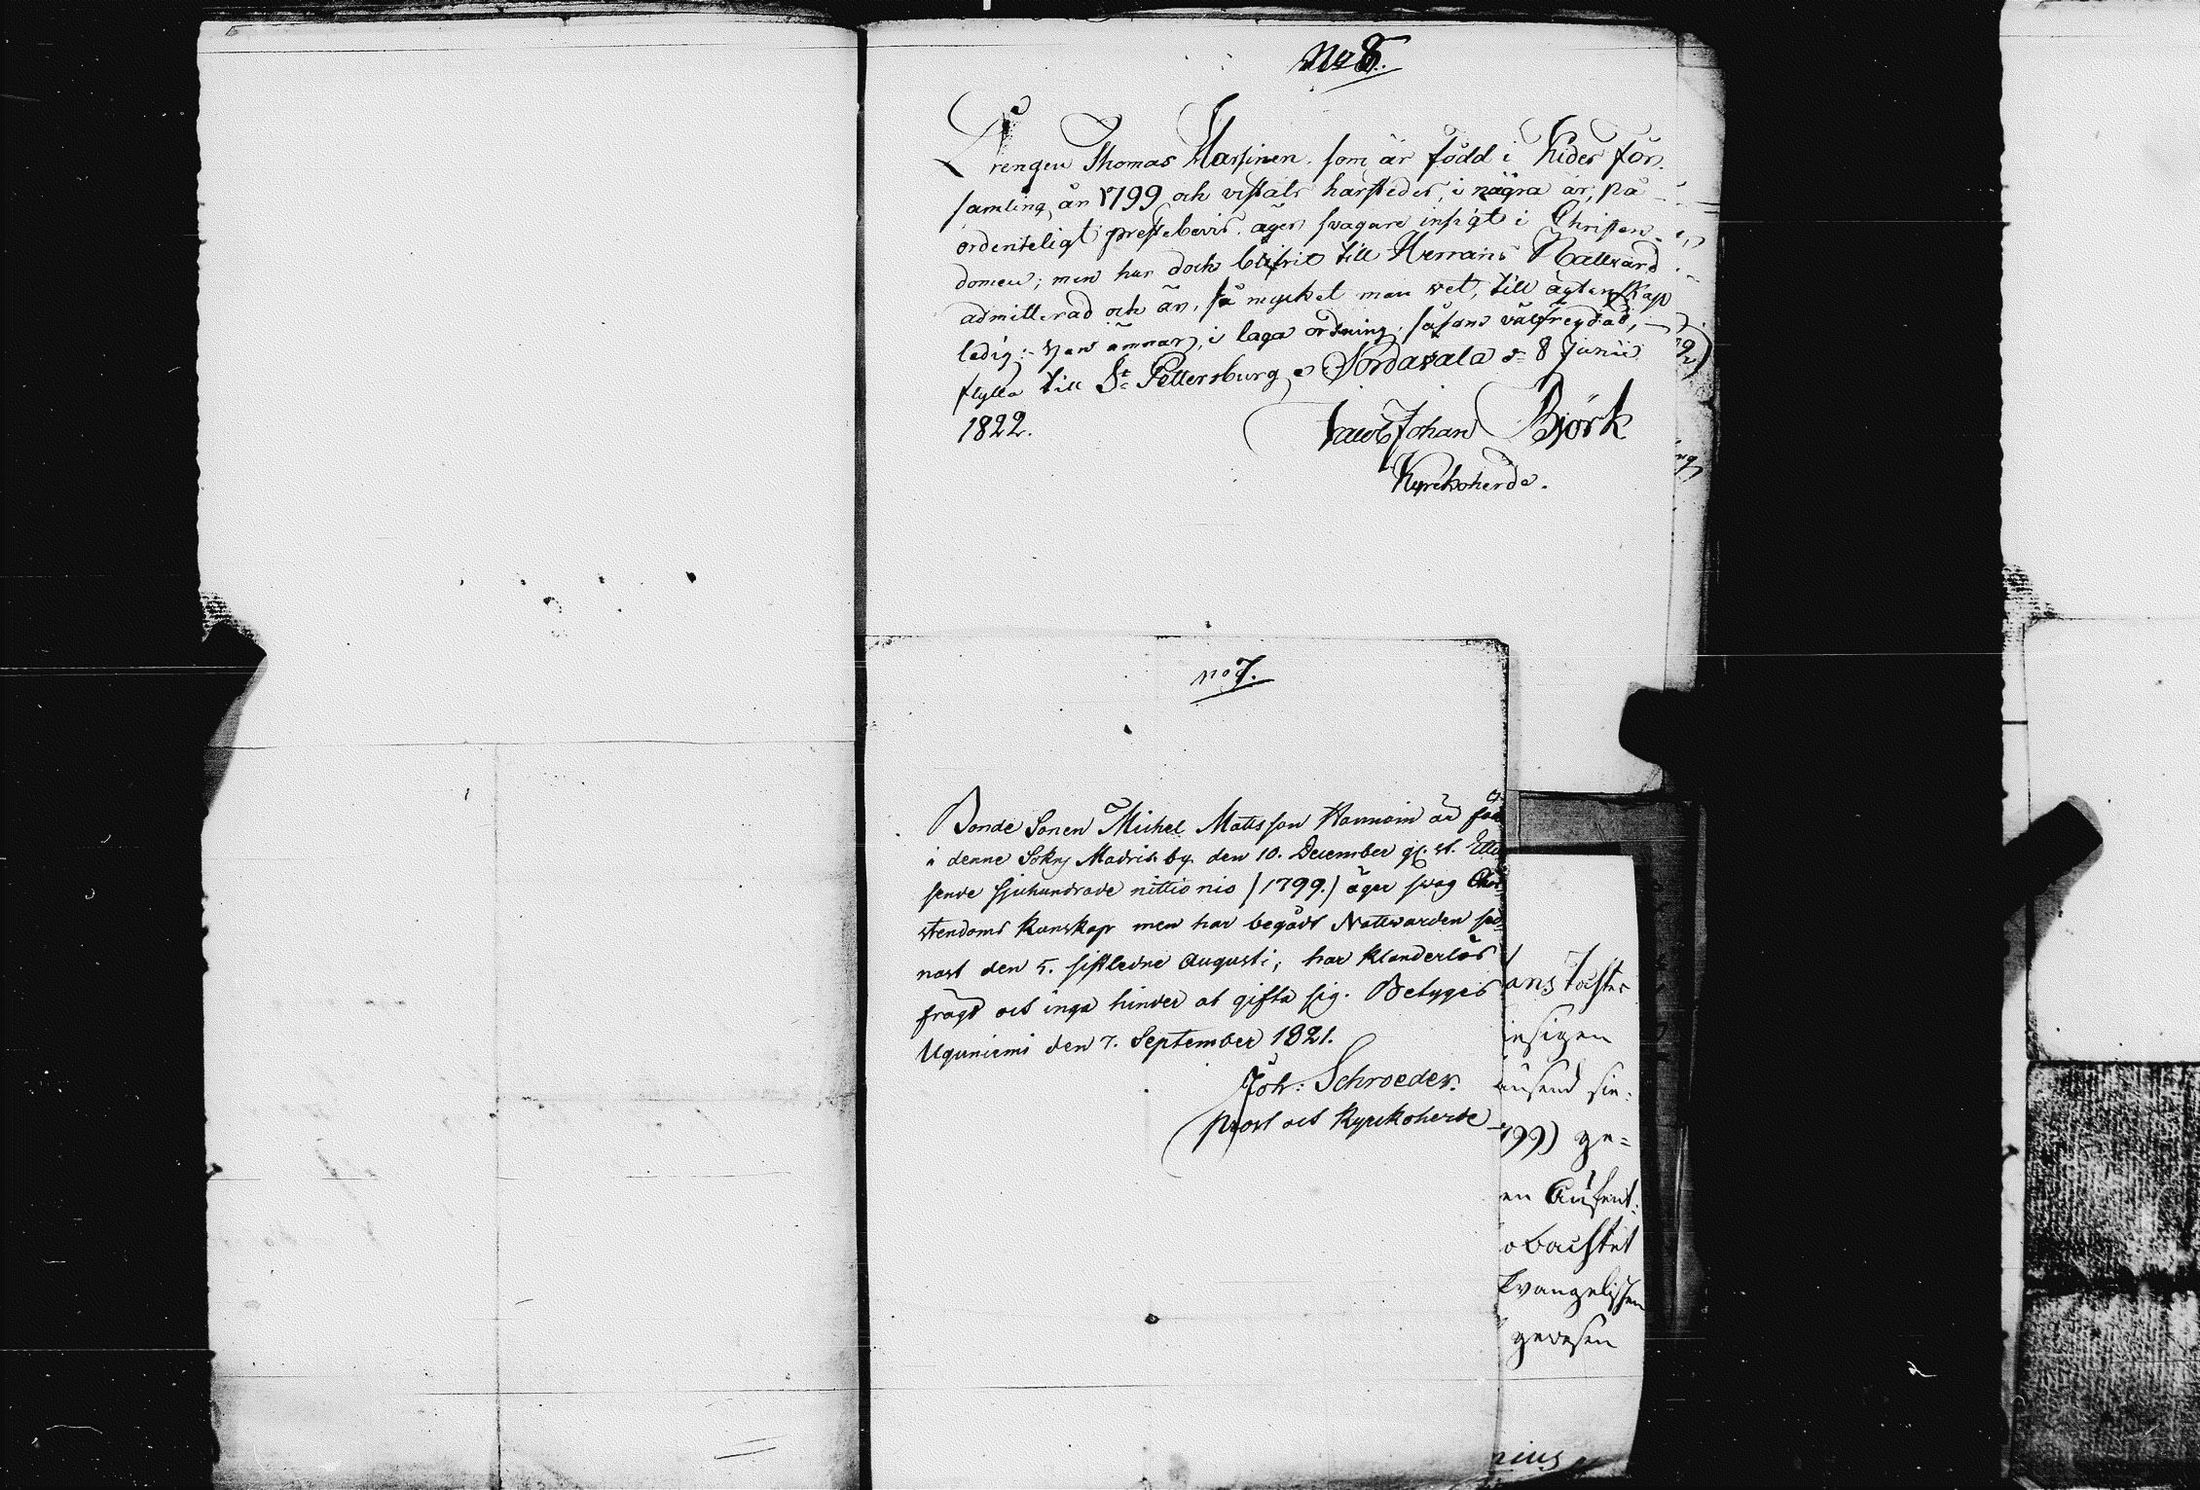 No 8.
Drengen Thomas Harsinen, som är född i Kides för-
samling år 1799 och vistats härstedes, i några år, på
ordenteligt prestebevis, äger svagare insigt i Christen-
domen; men har dock blifvit till Herrans Nattvard
admitterad och är, så mycket man vet, till ägtenskap
ledig: Han ämnar, i laga ordning, såsom välfreydad,
flytta till St Pettersburg. Sordavala d. 8 Junii
1822.
Jacob Johan Björk
Kyrckoherde.
no 7.
Bonde Sonen Michel Mattsson Hannoin är föd
i denne Sokns Madris by den 10. December gl. st. Ettu
sende sjuhundrade nittio nio /1799./ äger swag Chri-
stendoms Kunskap men har begådt Nattwarden sed
nast den 5. sistledne Augusti; har klanderlös
frägd och inga hinder at gifta sig. Betygas
Uguniemi den 7. September 1821.
Joh: Schroeder.
Prost och Kyrckoherde
ans Tochter
iesigen
ausend sie-
799) ge=
en Aufent-
obachtet
Evangelischen
gewesen
nius